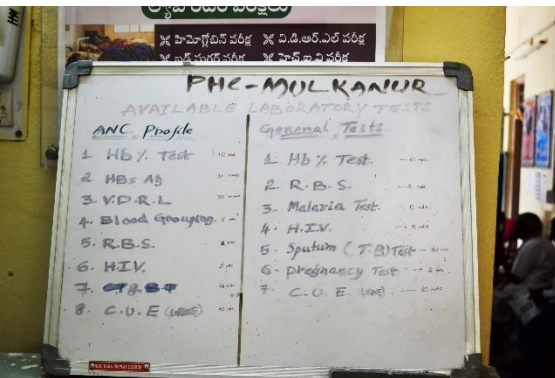 ల్యాబొరేటరీ పరీక్షలు
హిమోగ్లోబిన్ పరీక్ష వి.డి.ఆర్.ఎల్ పరీక్ష
బ్లడ్ షుగర్ పరీక్ష హెచ్.ఐ.వి పరీక్ష
PHC-MULKANUR
AVAILABLE LABORATORY TESTS
ANC Profile
1 Hb% Test
2 HBs Ag
3. V.D.R.L
4. Blood Grouping
5. R.B.S.
6. H.I.V.
7 CT & BT
8. C.U.E (URINE)
General Tests
1. Hb% Test
2. R.B.S.
3. Malaria Test
4. H.I.V.
5. Sputum (T.B) Test
6. Pregnancy Test
7. C.U.E